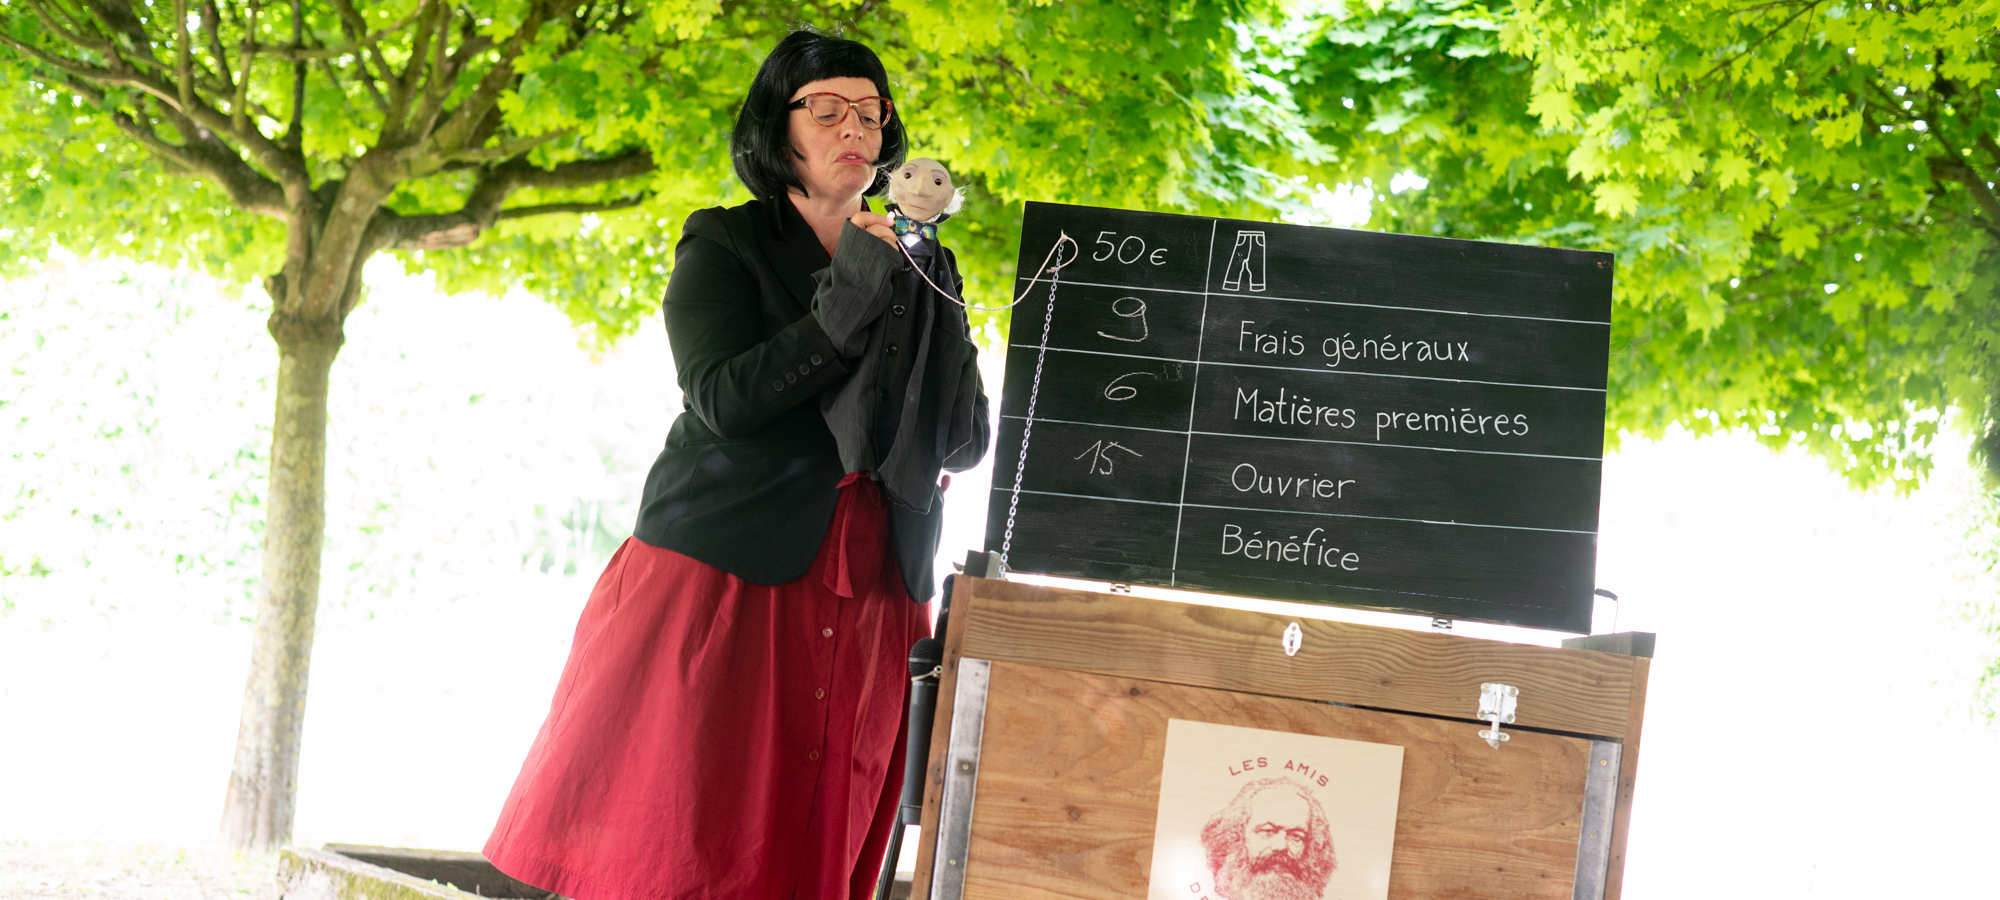 50€
9 Frais généraux
6 Matières premières
15 Ouvrier
Bénéfice
LES AMIS